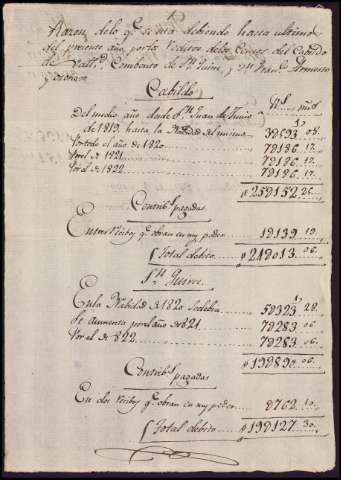 Razon de lo q.e se está debiendo hasta ultimo
del presente año, por los reditos de los Censos del Cabildo
de Vall.d, Combento de S.n Quirce, y
Cabildo
R.s mrs
Del medio año desde S.n Juan de Junio
de 1819, hasta la Navidad del mismo
Por todo el año de 1820 7D186.17.
Por el de 1821 7D186.17.
Por el de 1822 7D186.17.
Contrib.s pagadas
Entres recibos q.e obran en my poder 1D139.19.
Total debito
S.n Quirce
En la Nabidad de 1820 se debia 5D323.28
Se aumenta por el año de 821 7D283.06.
Por el de 822 7D283.06.
Contrib.s pagadas
En dos recibos q.e obran en my poder D762.10.
Total debito 19D127.30.